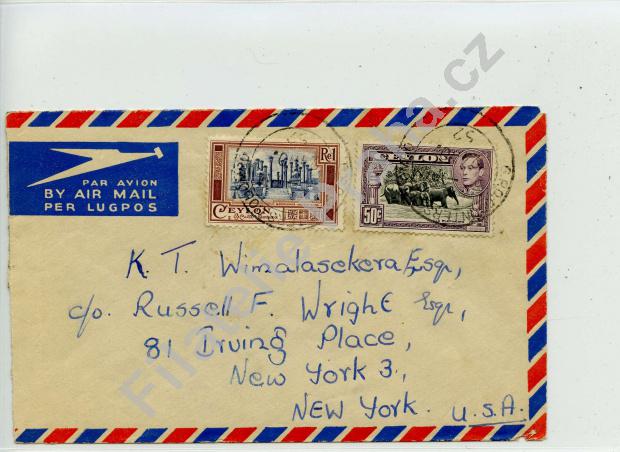 PAR AVION
BY AIR MAIL
PER LUGPOS
Re1
CEYLON
CEYLON
50c
52
K. T. Wimalasekera, Esqr,
c/o. Russell F. Wright Esqr,
81 Irving Place,
New York 3.,
NEW YORK. U.S.A.
Filatelie Klim
ba.cz